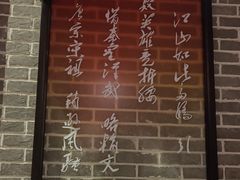 江山如此多娇 引
数英雄竞折腰
惜秦皇汉武 略输文
唐宗宋祖 稍逊风骚